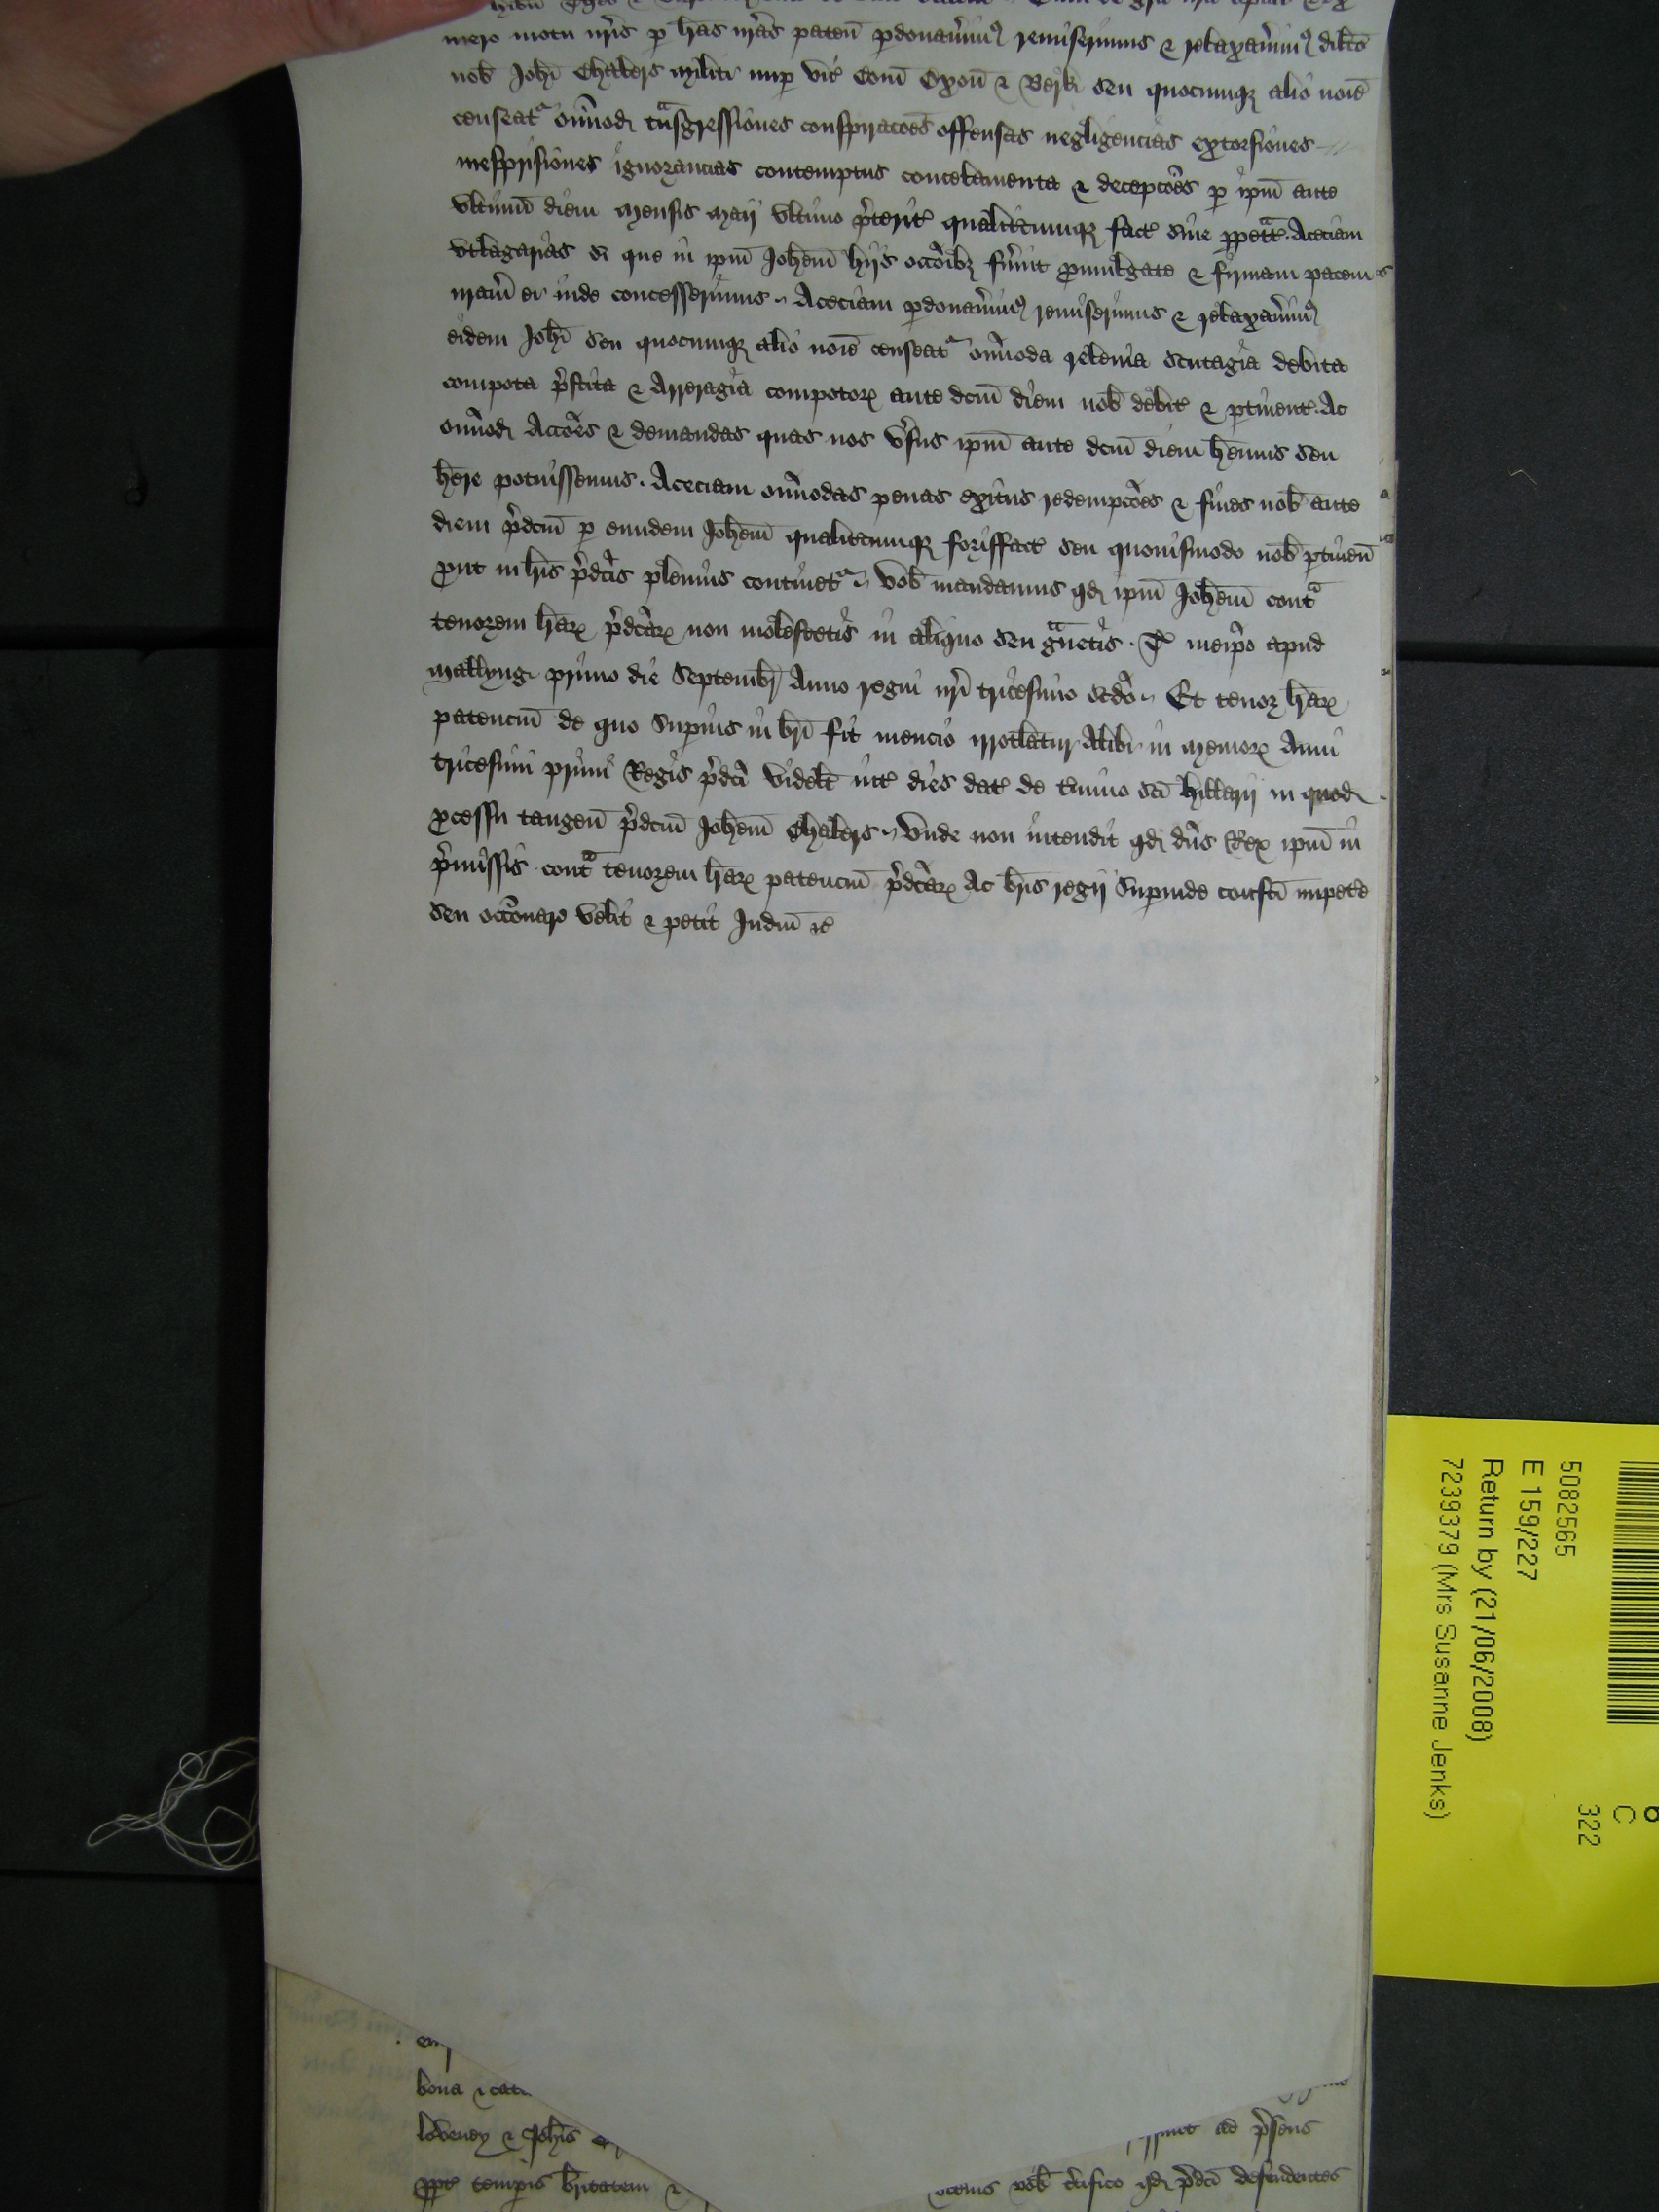 mero motu nr̄is p̱ l̄ras nr̄as pateñ p̱donaūimꝰ remiserimus ⁊ relaxaūimꝰ dilc̄o
nob̄ Joh̄i Chalers militi nup̱ vic̄ Com̄ Oxoñ ⁊ Berk̄ seu quocumqꝫ alio noīe
censeat᷑ om̄imod̄ tͣnsgressiones conspiracōes offensas negligencias extorsiones
mesprisiones ignorancias contemptus concelamenta ⁊ decepcōes p̱ ip̄m ante
vltimū diem mensis maij vltimo p̄terit̄ qualitercumqꝫ fact̄ siue p̱pet̄t̄. Aceciam
vtlagarias si que in ip̄m Joh̄em hijs occōibꝫ fūint p̱mulgate ⁊ firmam pacem
nr̄am ei inde concesserimus Aceciam p̱donaūimꝰ remiserimus ⁊ relaxaūimꝰ
eidem Joh̄i seu quocumqꝫ alio noīe censeat᷑ om̄imoda releuia scutagia debita
compota p̄stita ⁊ Arreragia compotoꝝ ante dc̄m diem nob̄ debit̄ ⁊ p̱tinent̄. Ac
om̄imod̄ Accōes ⁊ demandas quas nos v̄sus ip̄m ante dc̄m diem h̄emus seu
h̄ere potuissemus. Aceciam om̄imodas penas exitus redempcōes ⁊ fines nob̄ ante
diem p̄dc̄m p̱ eundem Joh̄em qualitercumqꝫ foriffact̄ seu quouismodo nob̄ p̱tineñ
p̱ut in l̄ris p̄dc̄is plenius continet᷑ vob̄ mandamus qd̄ ip̄m Joh̄em contͣ
tenorem l̄raꝝ p̄dc̄aꝝ non molestetis in aliquo seu gͣuetis. T̄ meip̄o apud
mallyng primo die Septembr̄ Anno regni nr̄i tricesimo sc̄do Et tenor l̄raꝝ
patencm̄ de quo Sup̱ius in br̄i fit mencio irrotlatur Alibi in memor̄ Anni
tricesimi primi Regis p̄dc̄i videlt̄ int̄ dies dat̄ de t̄mino sc̄i hillarij in quod̄
p̱cessu tangeñ p̄dc̄m Joh̄em Chalers Vnde non intendit qd̄ dn̄s Rex ip̄m in
p̄missis contͣ tenorem l̄raꝝ patencm̄ p̄dc̄aꝝ Ac br̄is regij Sup̱inde consc̄i impet̄e
seu occōnare velit ⁊ petit Judm̄ ⁊c̄
bona ⁊ cat
loveney ⁊ Joh̄is
ad p̄sens
p̱pt̄ temp̱is br̄itatem ⁊
vob̄ c̄tifico qd̄ p̄dc̄i defendentes
5082565
E 159/227
Return by (21/06/2008)
7239379 (Mrs Susanne Jenks)
C
322